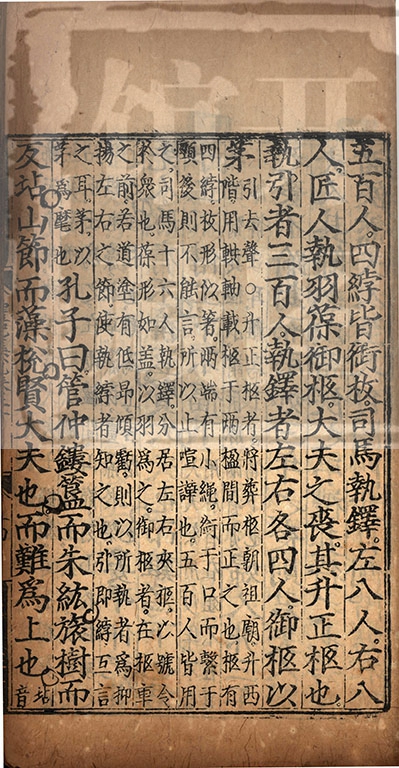 五百人。四綍皆銜枚。司馬執鐸。左八人。右八
人。匠人執羽葆御柩。大夫之喪。其升正柩也。
執引者三百人。執鐸者左右各四人。御柩以
茅引去聲○升正柩者將葬柩朝祖廟升西
階用輁軸載柩于兩楹間而正之也柩有
四綍枚形似箸兩端有小繩銜于口而繫于
頸後則不能言所以止喧譁也五百人皆用
之司馬十六人執鐸分居左右夾柩以號令
於衆也葆形如盖以羽爲之御柩者在柩車
之前若道塗有低昂傾虧則以所執者爲抑
揚左右之節使執綍者知之也引即綍互言
之耳茅以
茅爲麾也孔子曰管仲鏤簋而朱紘旅樹而
反坫山節而藻梲賢大夫也而難爲上也坫音